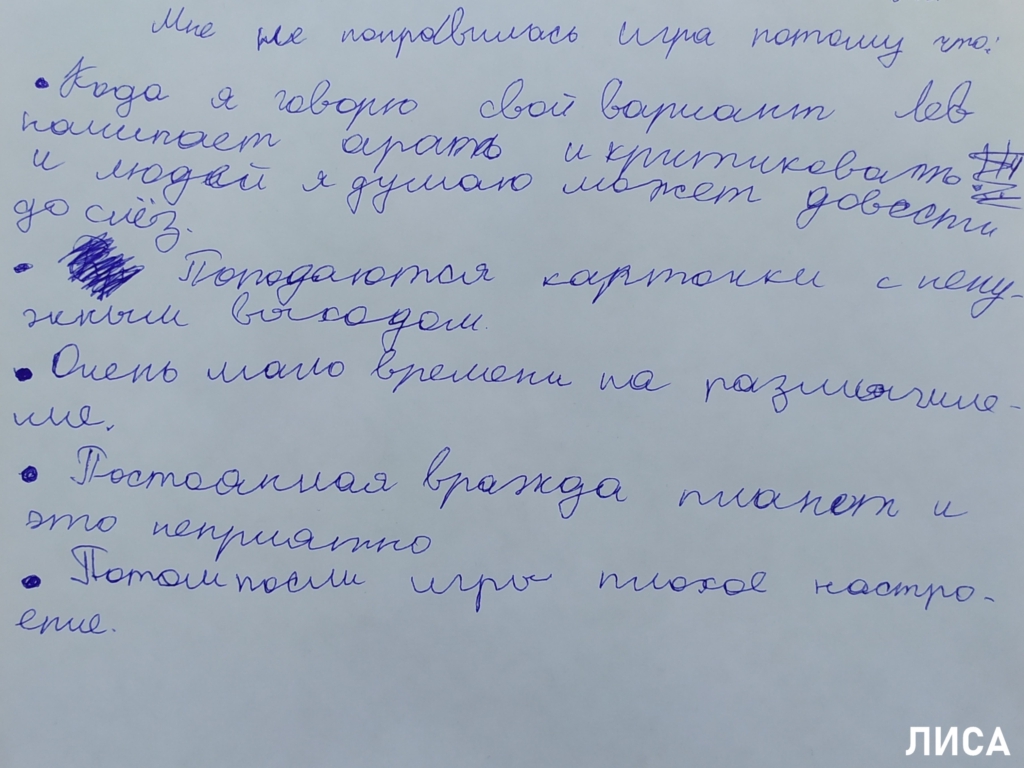 Мне не понравилась игра потому что:
• Кода я говорю свой вариант Лев
начинает арать и критиковать
и людей я думаю может довести
до слёз.
• Пoподаются карточки с нену-
жным выходом.
• Очень мало времени на размычле-
ние.
• Постоянная вражда планет и
это неприятно
• Потом посли игры плохое настро-
ение.
ЛИСА